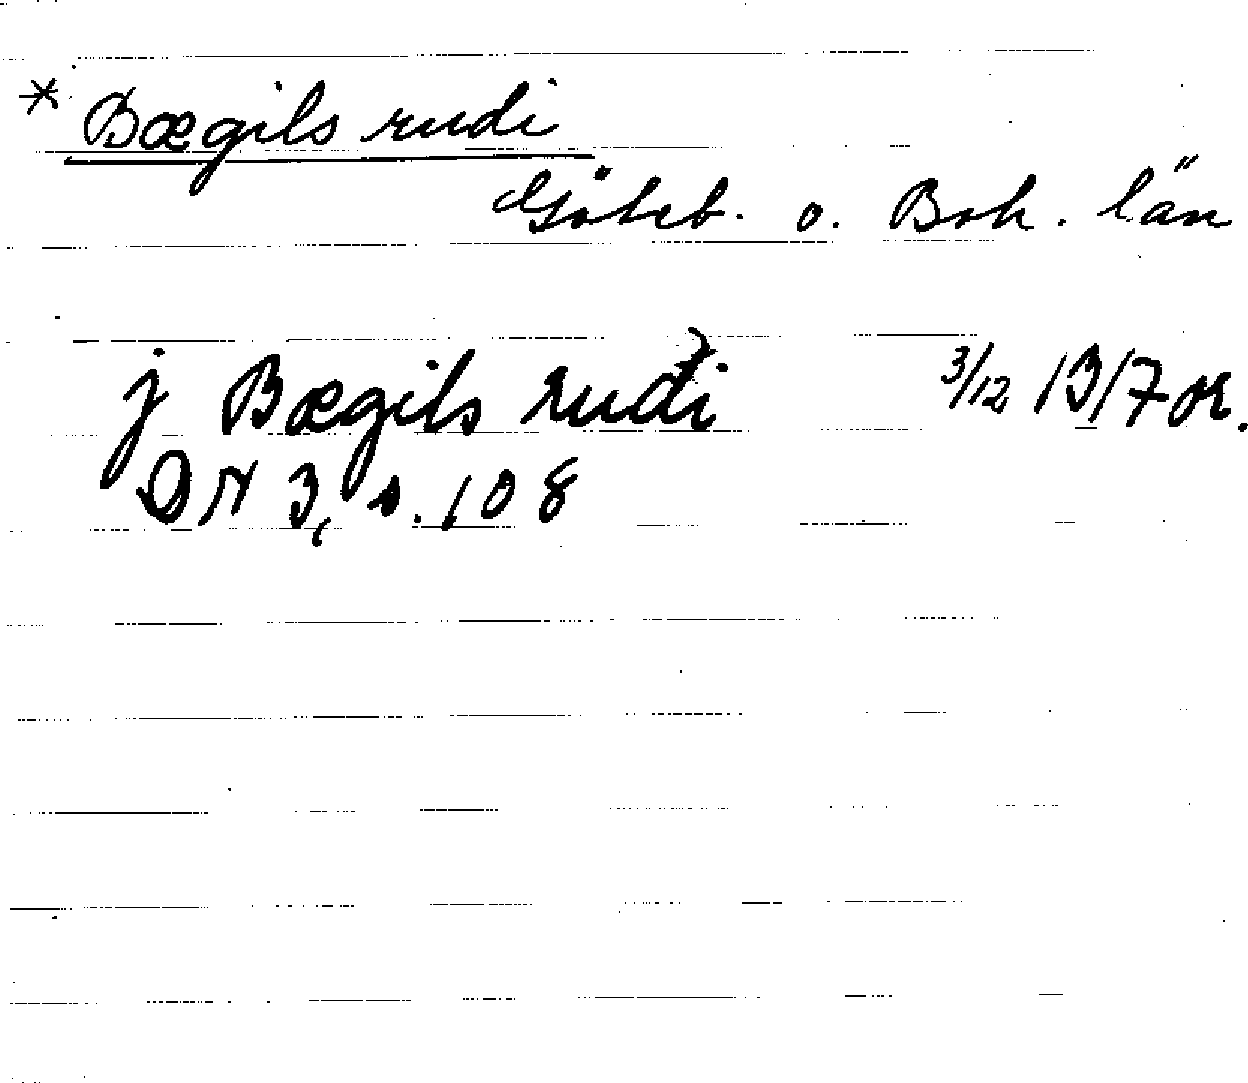 * Bœgils rudi
Göteb. o. Boh. län
j Bœgils ruđi 3/12 13/7 or.
DN 3, s. 108